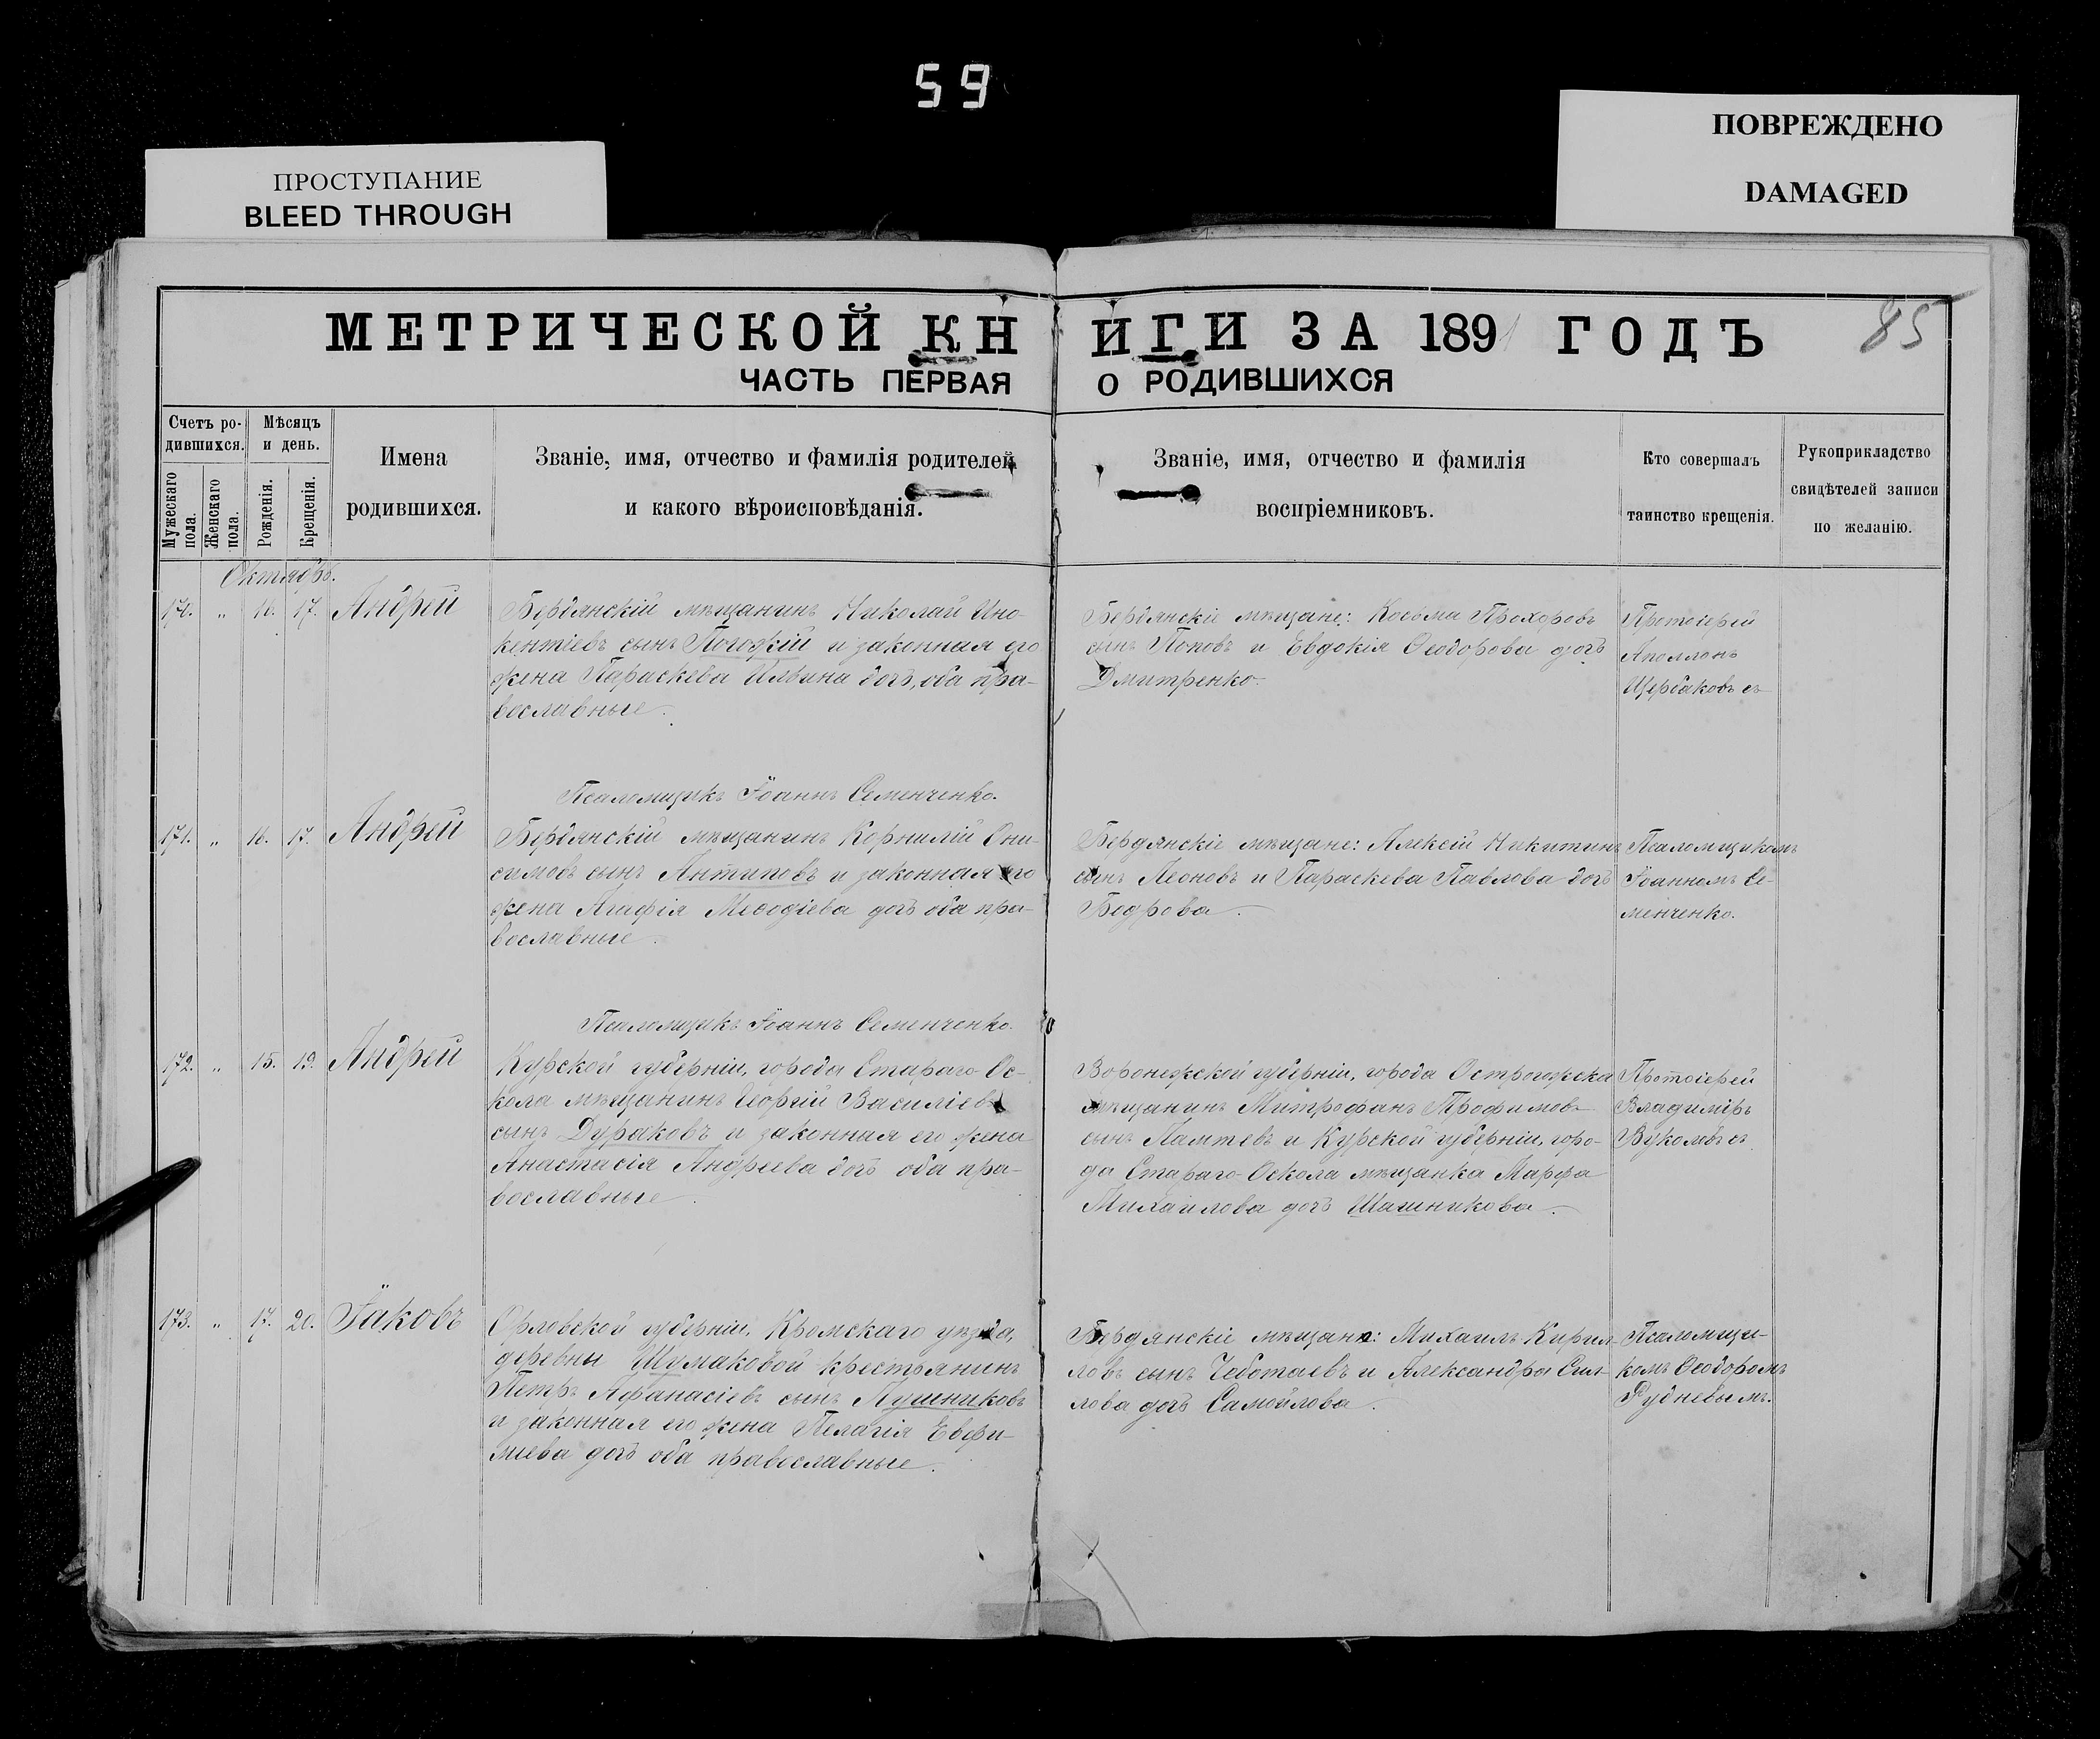 59
ПРОСТУПАНИЕ
BLEED THROUGH
ПОВРЕЖДЕНО
DAMAGED
МЕТРИЧЕСКОЙ КНИГИ ЗА 1891 ГОДЪ
85
ЧАСТЬ ПЕРВАЯ О РОДИВШИХСЯ
Счетъ ро-
дившихся.
Мужескаго
пола.
Женскаго
пола.
Мѣсяцъ
и день.
Рожденія.
Крещенія.
Имена
родившихся.
Званіе, имя, отчество и фамилія родителей
и какого вѣроисповѣданія.
Званіе, имя, отчество и фамилія
воспріемниковъ.
Кто совершалъ
таинство крещенія.
Рукоприкладство
свидѣтелей записи
по желанію.
Октябрь.
17. Андрей
Бердянскій мѣщанинъ Николай Ино-
кентіевъ сынъ Погожій и законная его
жена Параскева Ильина дочь, оба пра-
вославные.
Бердянскіе мѣщане: Косьма Прохоровъ
сынъ Поповъ и Евдокія Ѳеодорова дочь
Дмитренко.
Протоіерей
Аполлонъ
Щербаковъ съ
Псаломщикъ Іоаннъ Семенченко.
171. „ 16. 17. Андрей
Бердянскій мѣщанинъ Корнилій Они-
симовъ сынъ Антиповъ и законная его
жена Агафія Меѳодіева дочь оба пра-
вославные.
Бердянскіе мѣщане: Алексій Никитинъ
сынъ Леоновъ и Параскева Павлова дочь
Бодрова.
Псаломщикомъ
Іоанномъ Се-
менченко.
Псаломщикъ Іоаннъ Семенченко.
172. „ 15. 19. Андрей
Курской губерніи, города Стараго-Ос-
кола мѣщанинъ Георгій Василіевъ
сынъ Дураковъ и законная его жена
Анастасія Андреева дочь оба пра-
вославные.
Воронежской губерніи, города Острогожска
мѣщанинъ Митрофанъ Трофимовъ
сынъ Лаптевъ и Курской губерніи, горо-
да Стараго-Оскола мѣщанка Марфа
Михайлова дочь Шашникова.
Протоіерей
Владиміръ
Вуколовъ съ
173. „ 17. 20. Іаковъ
Орловской губерніи, Кромскаго уѣзда,
деревны Шумаковой крестьянинъ
Петръ Афанасіевъ сынъ Лушниковъ
и законная его жена Пелагія Евфи-
міева дочь оба православные.
Бердянскіе мѣщане: Михаилъ Кирил-
ловъ сынъ Чеботаевъ и Александра Сил-
лова дочь Самойлова.
Псаломщи-
комъ Ѳеодоромъ
Рудневымъ.